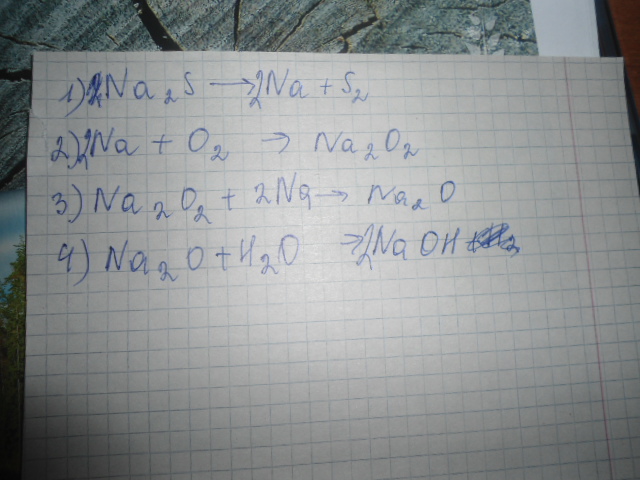 1) 2Na2S → 2Na + S2
2) 2Na + O2 → Na2O2
3) Na2O2 + 2Na → Na2O
4) Na2O + H2O → 2NaOH